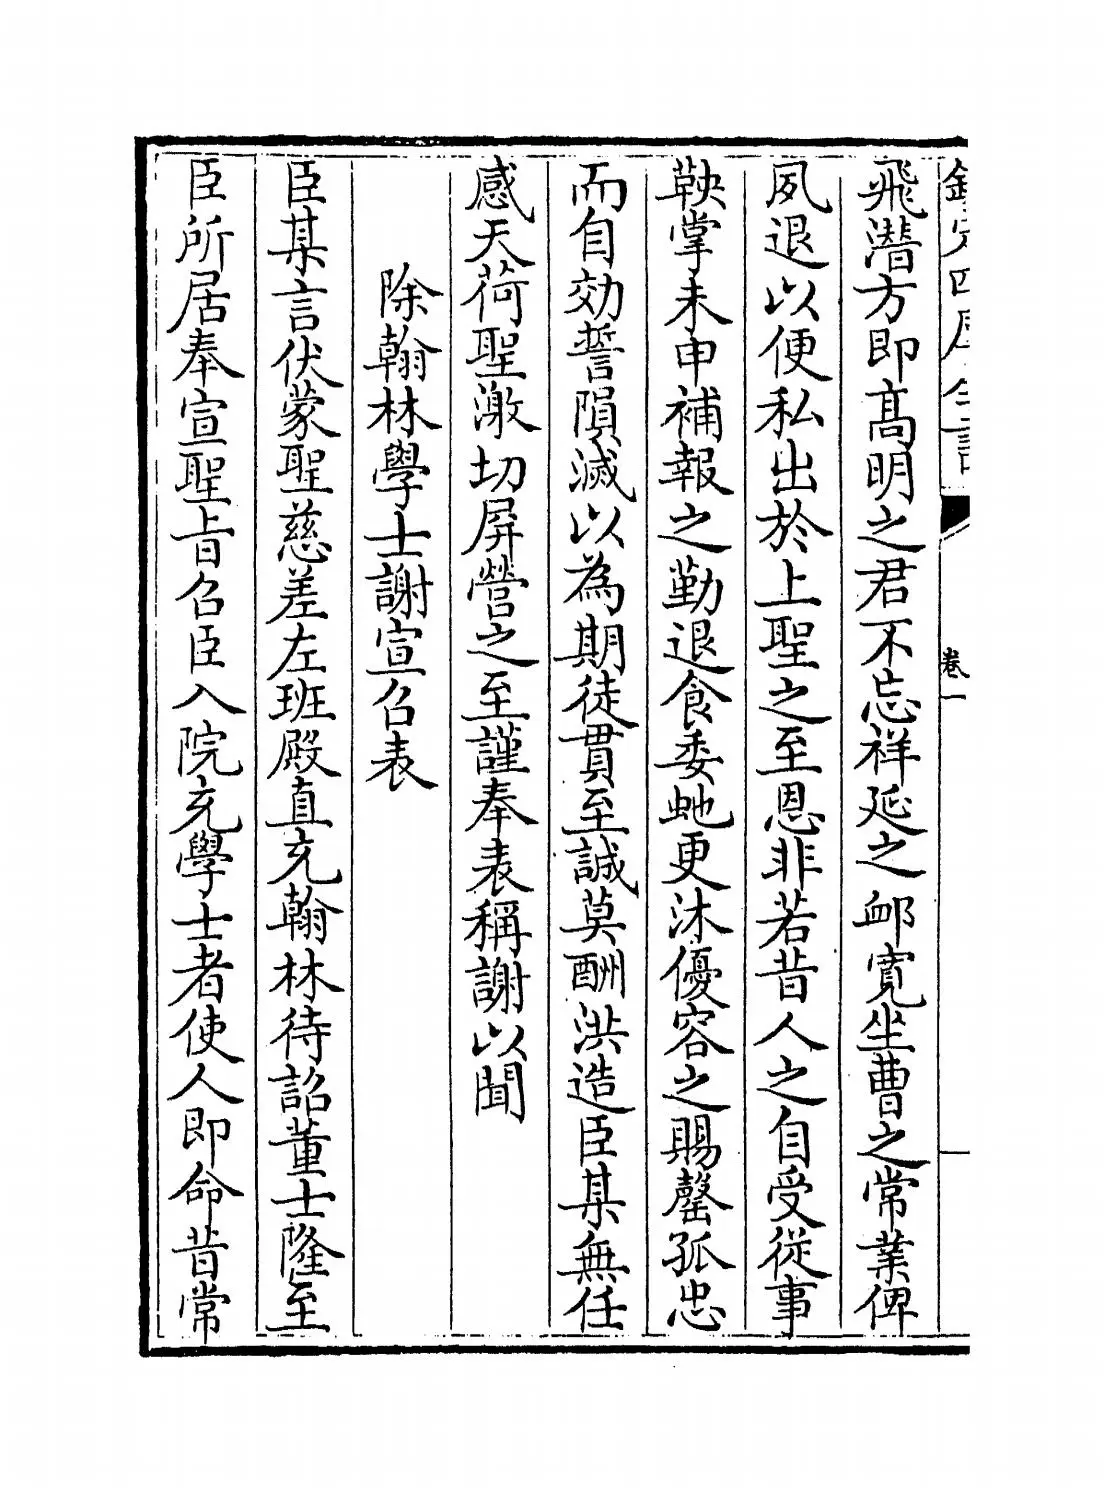 欽定四庫全書
卷一
飛潛方即髙明之君不忘祥延之䘏寛坐曹之常業俾
夙退以便私出於上聖之至恩非若昔人之自受從事
鞅掌未申補報之勤退食委虵更沐優容之賜罄孤忠
而自効誓隕滅以為期徒貫至誠莫酬洪造臣某無任
感天荷聖激切屏營之至謹奉表稱謝以聞
除翰林學士謝宣召表
臣某言伏蒙聖慈差左班殿直充翰林待詔董士隆至
臣所居奉宣聖㫖召臣入院充學士者使人即命昔常